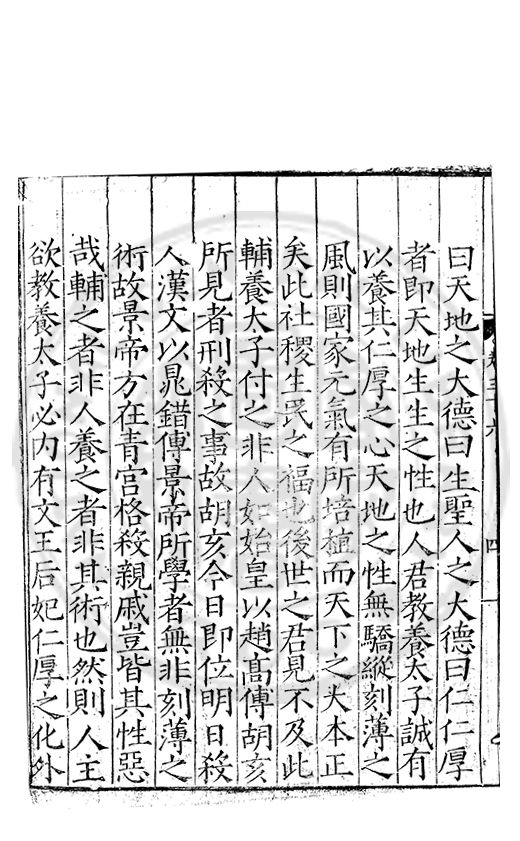 曰天地之大德曰生聖人之大德曰仁仁厚
者即天地生生之性也人君教養太子誠有
以養其仁厚之心天地之性無驕縱刻薄之
風則國家元氣有所培植而天下之大本正
矣此社稷生民之福也後世之君見不及此
輔養太子付之非人如始皇以趙高傅胡亥
所見者刑殺之事故胡亥今日即位明日殺
人漢文以晁錯傅景帝所學者無非刻薄之
術故景帝方在青宫格殺親戚豈皆其性惡
哉輔之者非人養之者非其術也然則人主
欲教養太子必内有文王后妃仁厚之化外